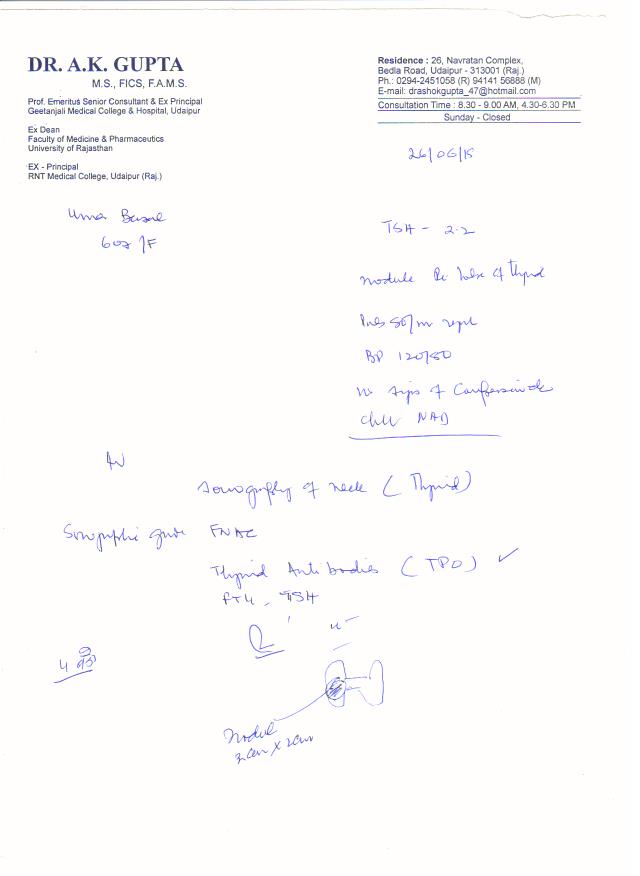 DR. A.K. GUPTA
M.S., FICS, F.A.M.S.
Prof. Emeritus Senior Consultant & Ex Principal
Geetanjali Medical College & Hospital, Udaipur
Ex Dean
Faculty of Medicine & Pharmaceutics
University of Rajasthan
EX - Principal
RNT Medical College, Udaipur (Raj.)
Residence : 26, Navratan Complex,
Bedla Road, Udaipur - 313001 (Raj.)
Ph.: 0294-2451058 (R) 94141 56888 (M)
E-mail: drashokgupta_47@hotmail.com
Consultation Time : 8.30 - 9.00 AM, 4.30-6.30 PM
Sunday - Closed
26/06/15
Uma
/F
TSH - 2.2
nodule Rt lobe of thyroid
BP 120/80
no signs of
NAD
Adv
Sonography of neck (Thyroid)
Sonographic guide FNAC
Thyroid Antibodies (TPO) ✓
FT4, TSH
4
Nodule
2cm x 2cm